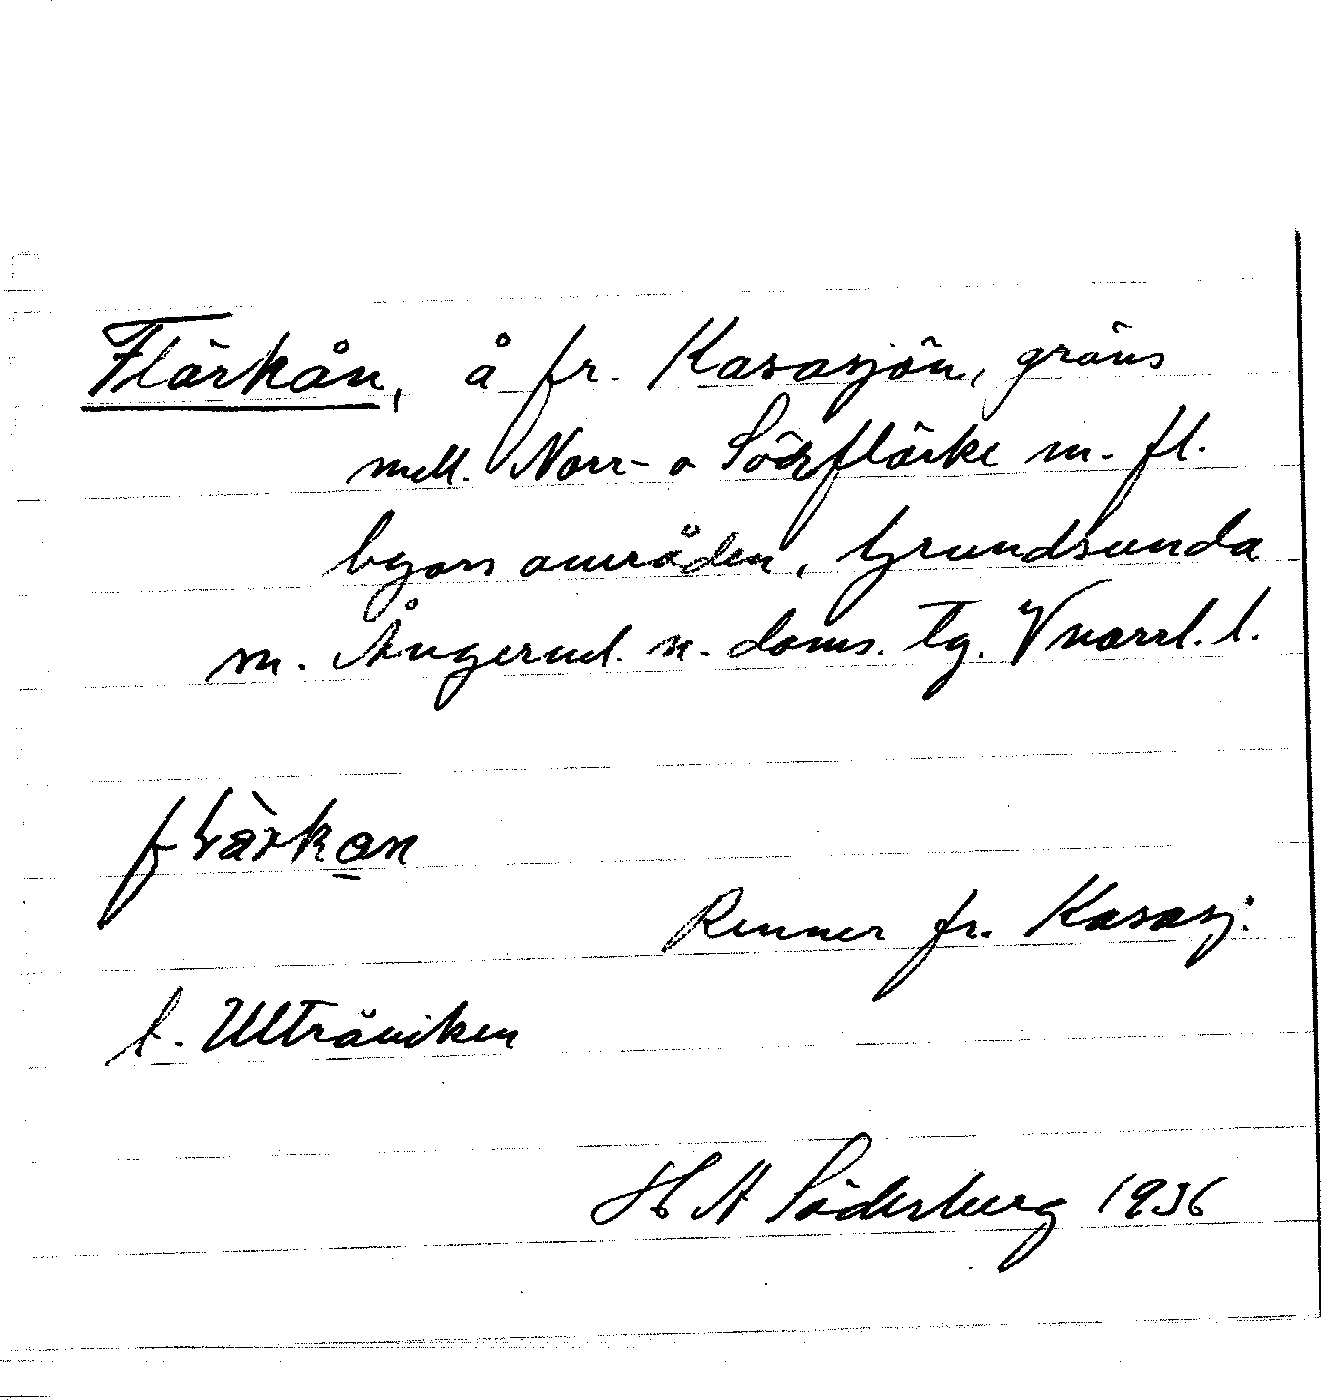 Flärkån, å fr. Kasasjön, gräns
mell. Norr- o Söderflärke m. fl.
byars områden, Grundsunda
sn. Ångerml. n. doms. tg. Vnorrl. l.
flärkan
Rinner fr. Kasasj.
t. Ultråviken
H A Söderberg 1936